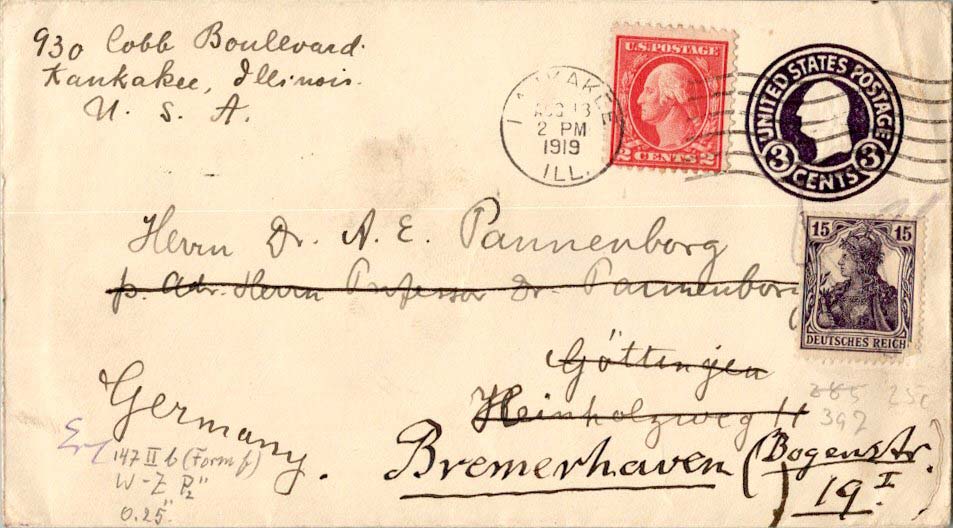 930 Cobb Boulevard.
Kankakee, Illinois.
U. S. A.
KANKAKEE
AUG 13
2 PM
1919
ILL.
U.S. POSTAGE
2 CENTS 2
UNITED STATES POSTAGE
3 CENTS 3
Herrn Dr. A. E. Pannenborg
p. Adr. Herrn Professor Dr. Pannenborg
15 15
DEUTSCHES REICH
Göttingen
Heinholzweg 11
Germany.
Bremerhaven (Bogenstr.
19 I
392
147 II b (Form f)
W-Z P2"
0.25"